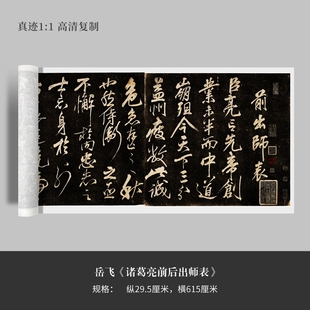 真迹1:1 高清复制
前出師表
臣亮言先帝創
業未半而中道
崩殂今天下三分
益州疲敝此誠
危急存亡之秋
也然侍衛之臣
不懈於內忠志之
士忘身於外
岳飞《诸葛亮前后出师表》
规格： 纵29.5厘米，横615厘米